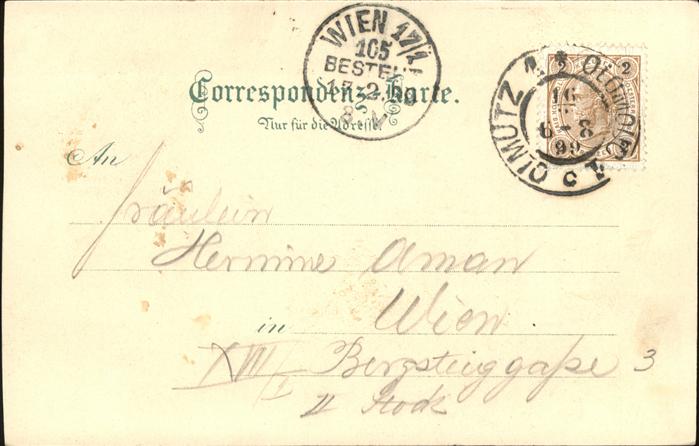 WIEN 17/1
105
BESTELLT
17.2.99
8.V
2 2
OLMÜTZ
OLOMOUC
16
6-8
99
Correspondenz-Karte.
Nur für die Adresse.
An
Fräulein
Hermine Aman
in Wien
XVII/I Bergsteiggaße 3
II Stock